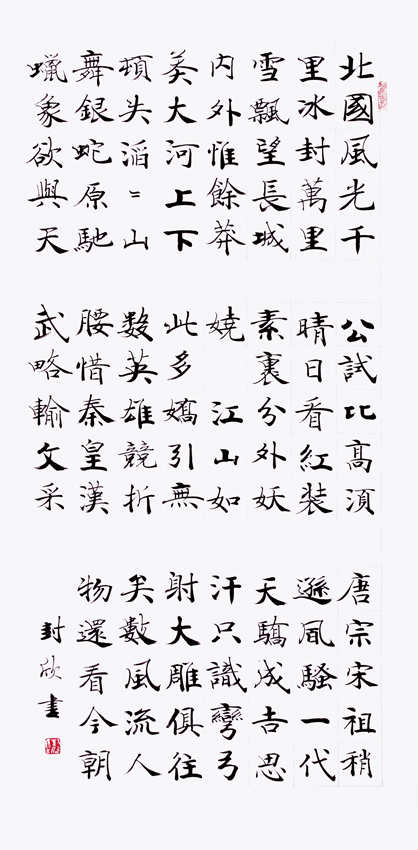 北國風光千
里冰封萬里
雪飄望長城
内外惟餘莽
莽大河上下
頓失滔=山
舞銀蛇原馳
蠟象欲與天
公試比高須
晴日看紅裝
素裹分外妖
嬈 江山如
此多嬌引無
数英雄競折
腰惜秦皇漢
武略輸文采
唐宗宋祖稍
遜風騷一代
天驕成吉思
汗只識彎弓
射大雕俱往
矣數風流人
物還看今朝
封欣書